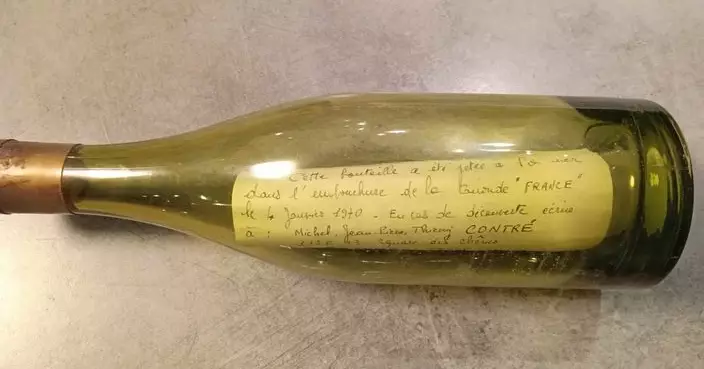 Cette bouteille a été jetée à la mer
dans l'embouchure de la Gironde "FRANCE"
le 4 Janvier 1970 - En cas de découverte écrire
à : Michel, Jean-Pierre, Thierry CONTRÉ
square des chênes